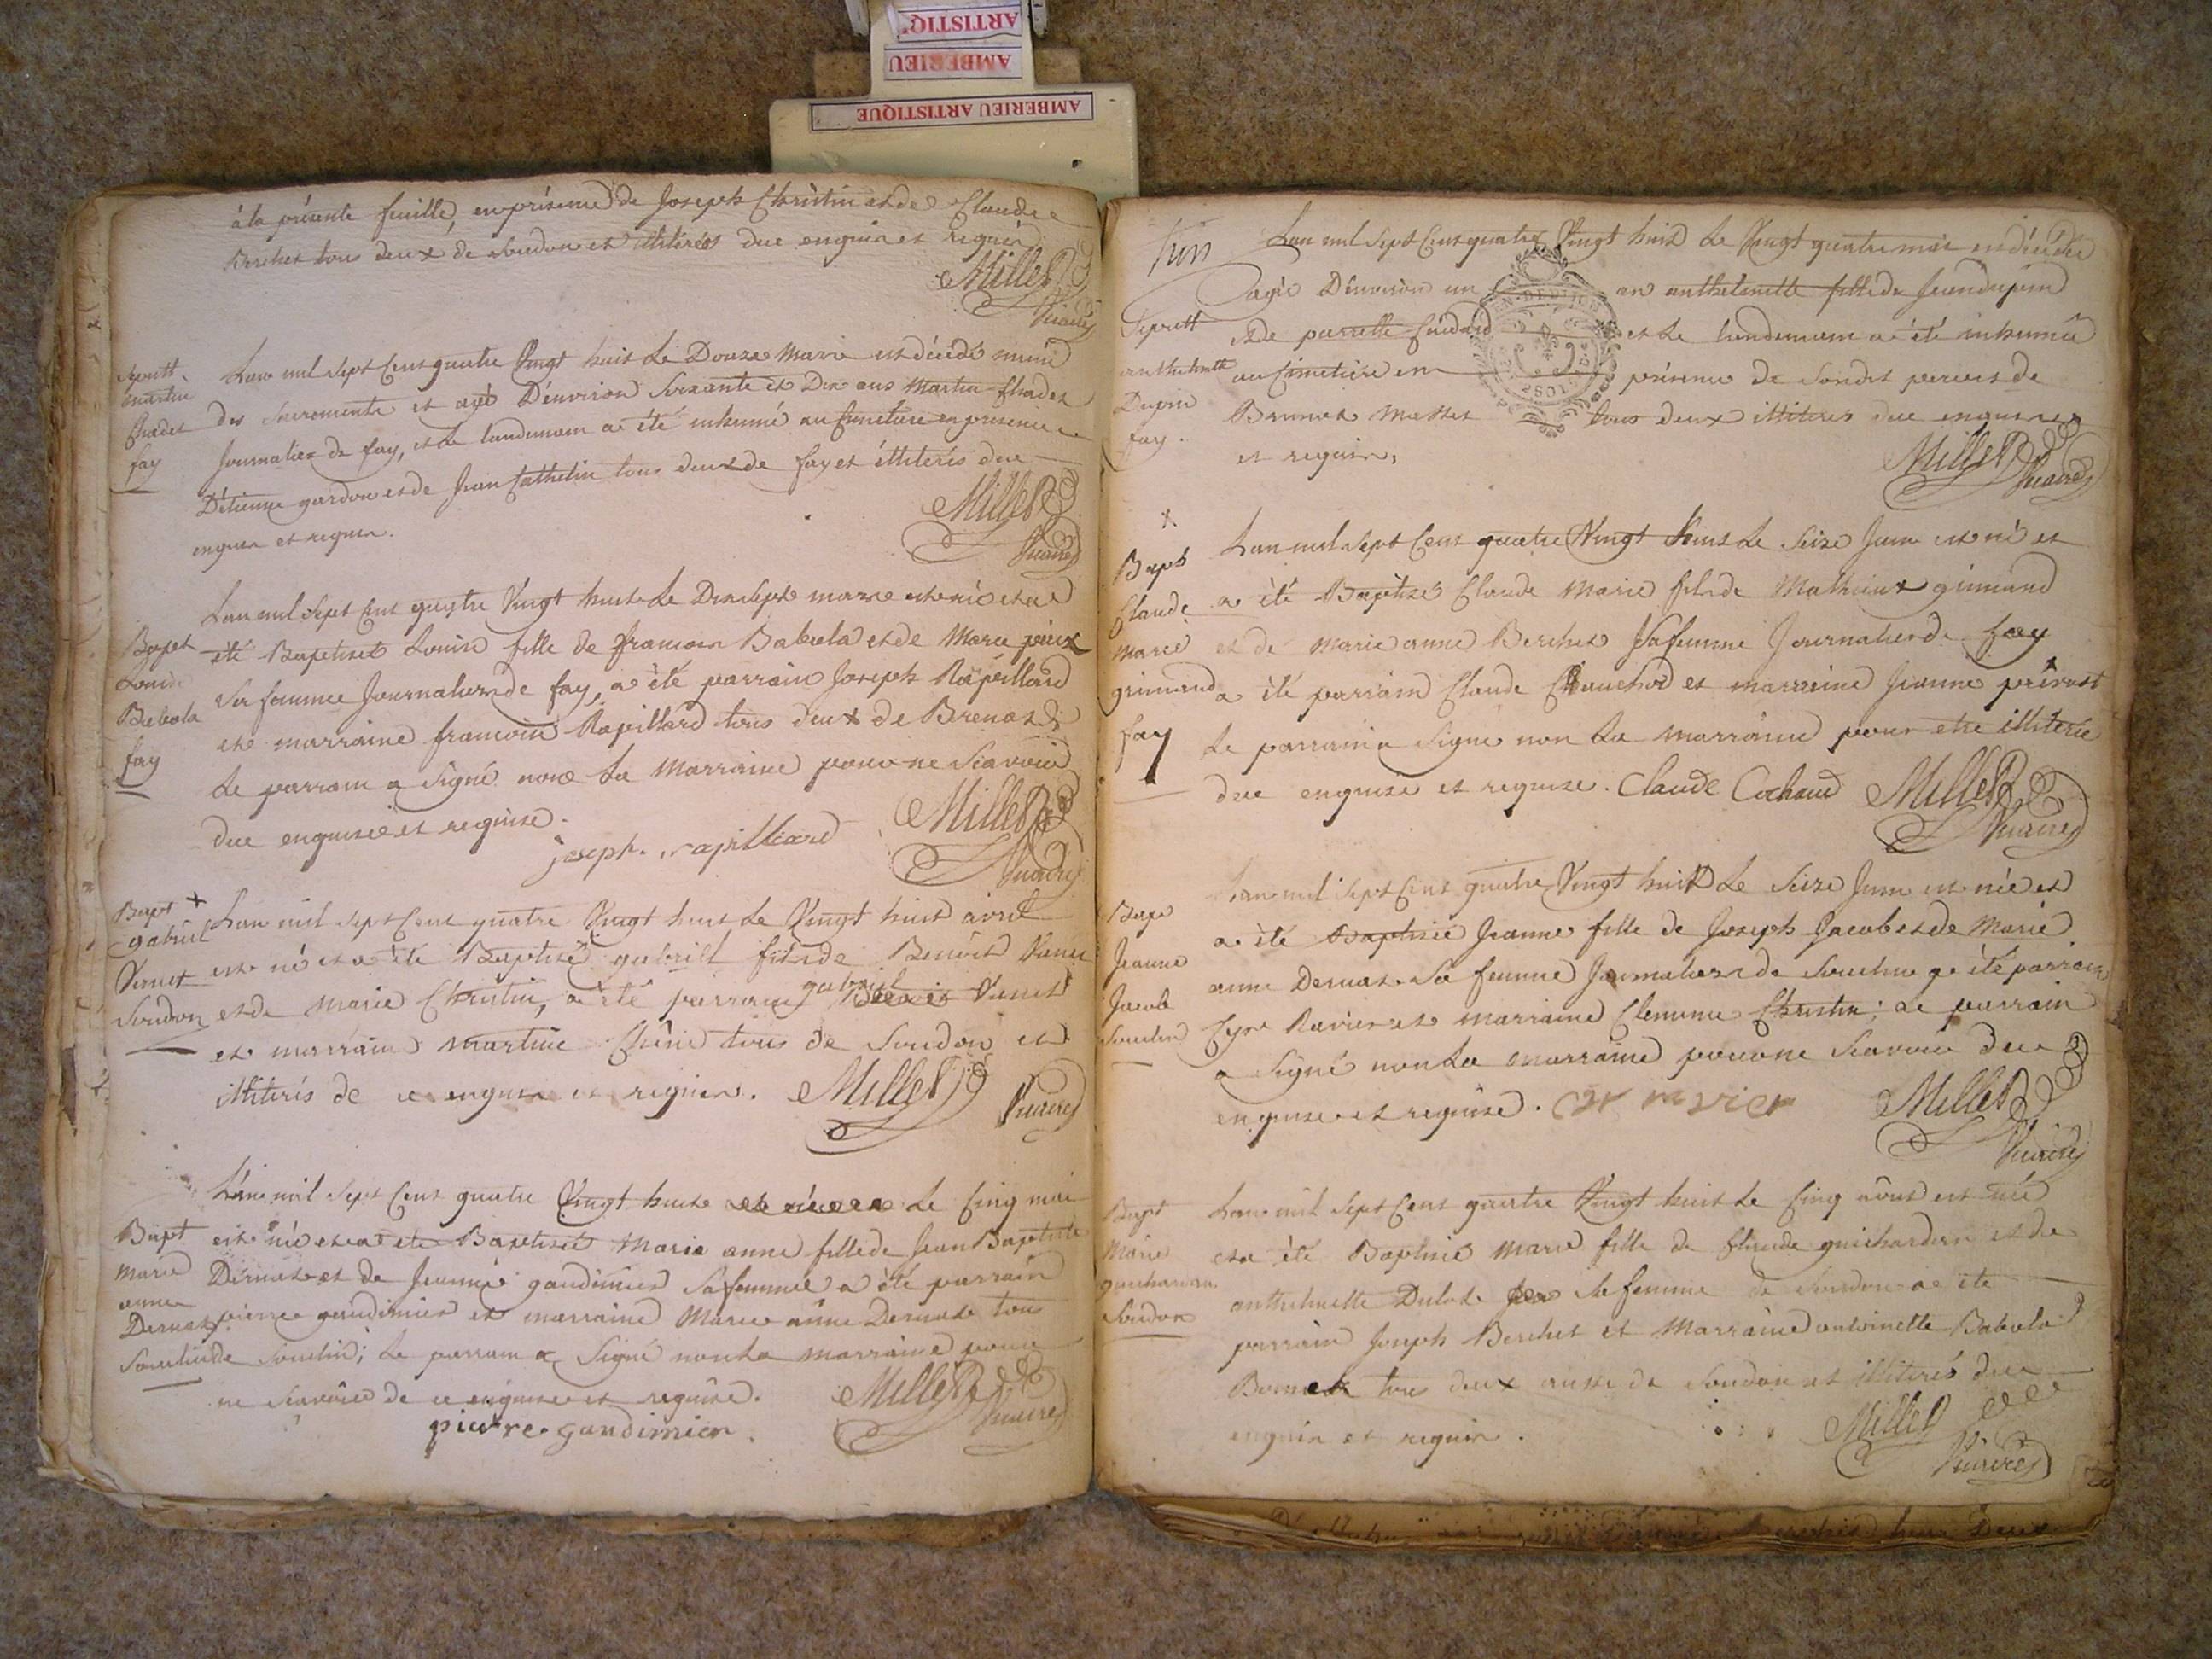 ARTISTIQ
AMBERIEU
AMBERIEU ARTISTIQUE
à la présente feuille, en présence de Joseph Christin et de Claude
Berchet tous deux de Soudon et illiterés due enquis et requis
Millet
Vicaire
Sepult
martin
fay
Lan mil Sept Cent quatre Vingt huit Le Douze Mars est décédé muni
des Sacrements et agé D'environ Soixante et Dix ans Martin
Journalier de fay, et Le lendemain a été inhumé au Cimetiere en présence
D'étienne gardon et de Jean Cathelin tous deux de fay et illiterés due
enquis et requis.
Millet
Vicaire
Bapt
Louise
Babola
fay
Lan mil Sept Cent quatre Vingt huit Le Dix Sept mars est née et a
été Baptisée Louise fille de francois Babola et de Marie
Sa femme Journaliers de fay, a été parrain Joseph Rapillard
et marraine francoise Rapillard tous deux de Brenas
Le parrain a Signé non La Marraine pour ne Scavoir
due enquise et requise.
joseph rapilliard
Millet
Vicaire
Bapt +
gabriel
Vanet
Soudon
Lan mil Sept Cent quatre Vingt huit Le Vingt huit avril
est né et a été Baptisé gabriel fils de Benoit Vanet
et de Marie Christin, a été parrain gabriel Vanet
et marraine martine Chêne tous de Soudon et
illiterés de ce enquis et requis.
Millet
Vicaire
Bapt
Marie
anne
Dernas
Lan mil Sept Cent quatre Vingt huit Le Cinq mai
est née et a été Baptisée Marie anne fille de Jean Baptiste
Dernas et de Jeanne gaudimier Sa femme a été parrain
pierre gaudimier et marraine Marie anne Dernas tous
de Soudin; Le parrain a Signé non La marraine pour
ne Scavoir de ce enquise et requise.
pierre gaudimier
Millet
Vicaire
Sepult
anthelmette
Dupin
fay.
Lan mil Sept Cent quatre Vingt huit Le Vingt quatre mai est décédée
agée D'environ un an anthelmette fille de Jean dupin
et de et Le lendemain a été inhumée
au Cimetiere en présence de de
tous deux illiteres due enquis
et requis,
Millet
Vicaire
+
Bapt
Claude
marie
grimand
fay
Lan mil Sept Cent quatre Vingt huit Le Seize Juin est né et
a été Baptisé Claude Marie fils de Mathieu grimand
et de Marie anne Berchet Sa femme Journalier de fay
a été parrain Claude Couchod et marraine Jeanne prévost
Le parrain a Signé non La marraine pour etre illiterée
due enquise et requise. Claude Cochaud
Millet
Vicaire
Bapt
Jeanne
Jacob
Lan mil Sept Cent quatre Vingt huit Le Seize Juin est née et
a été Baptisée Jeanne fille de Joseph Jacob et de Marie
anne Dernas Sa femme Journaliers de a été parrain
Cyr Ravier et marraine Clemence Christin; Le parrain
a Signé non La marraine pour ne Scavoir due
enquise et requise. Cir ravier
Millet
Vicaire
Bapt
Marie
Soudon
Lan mil Sept Cent quatre Vingt huit Le Cinq aôust est née
et a été Baptisée Marie fille de Claude guichardan et de
anthelmette Sa femme de Soudon a été
parrain Joseph Berchet et Marraine antoinette Babola
tous deux aussi de Soudon et illiterés due
enquis et requis.
Millet
Vicaire